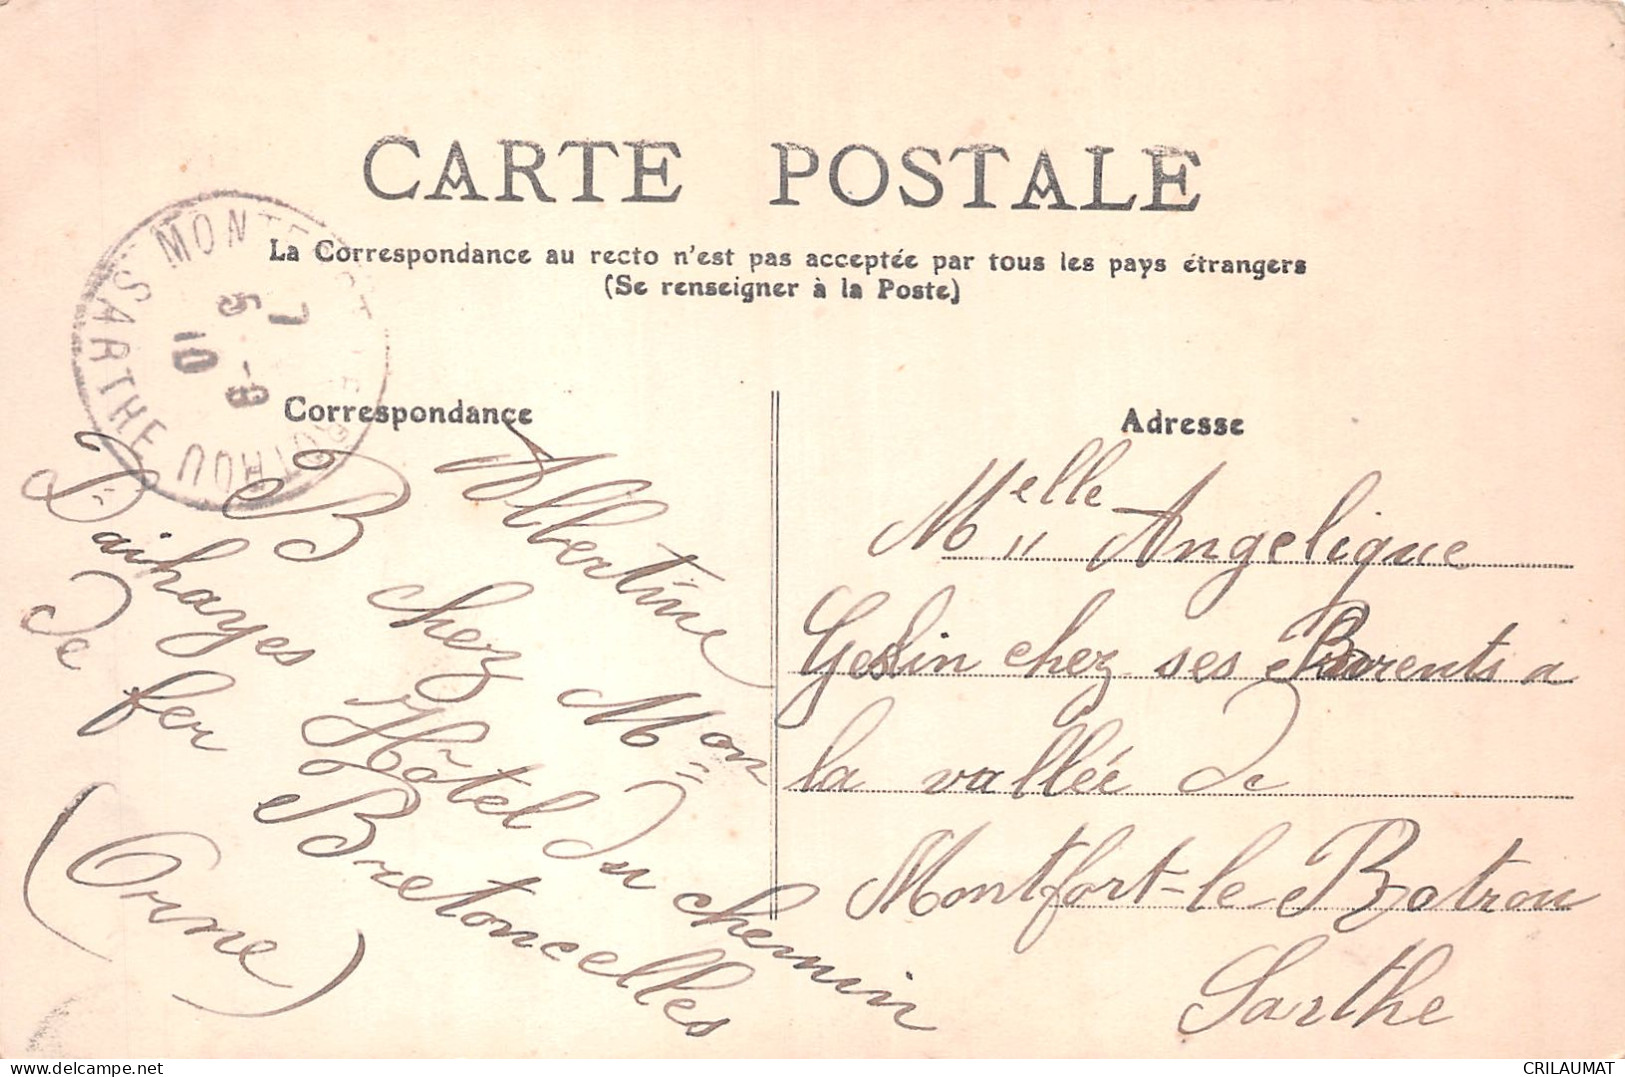 CARTE POSTALE
La Correspondance au recto n'est pas acceptée par tous les pays étrangers
(Se renseigner à la Poste)
MONTFORT LE ROTROU
SARTHE
7
5 -8
10
Correspondance
Albertine
B chez Mon
Daihayes Hôtel du chemin
de fer Bretoncelles
(Orne)
Adresse
Melle Angelique
Geslin chez ses Parents a
la vallée de
Montfort-le Rotrou
Sarthe
CRILAUMAT